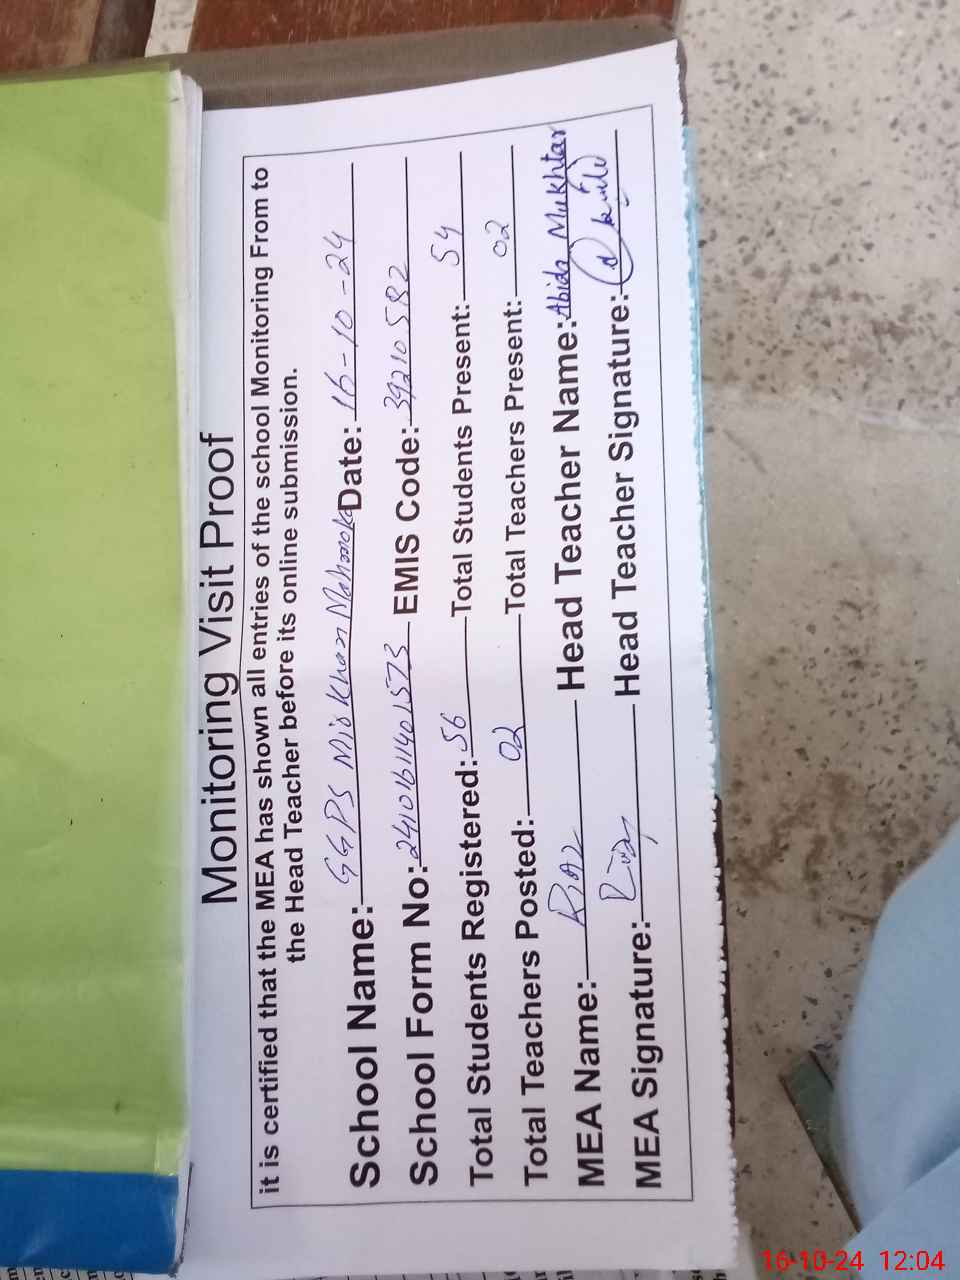 Monitoring Visit Proof
it is certified that the MEA has shown all entries of the school Monitoring From to
the Head Teacher before its online submission.
School Name: GGPS Mis Khan Mahonoka Date: 16-10-24
School Form No: 2410161401573 EMIS Code: 39210582
Total Students Registered: 56 Total Students Present: 54
Total Teachers Posted: 02 Total Teachers Present: 02
MEA Name: Riaz Head Teacher Name: Abida Mukhtar
MEA Signature: Riaz Head Teacher Signature:
16-10-24 12:04